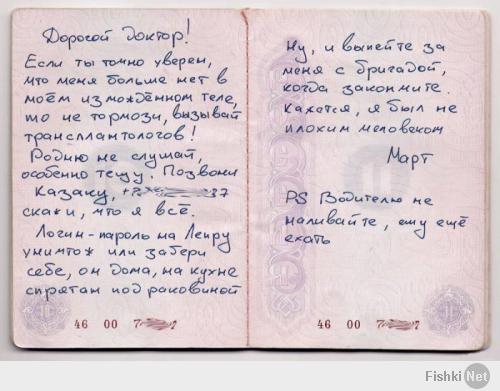 Дорогой доктор!
Если ты точно уверен,
что меня больше нет в
моём измождённом теле,
то не тормози, вызывай
трансплантологов!
Родню не слушай,
особенно тёщу. Позвони
Казаку, 37
скажи, что я всё.
Логин-пароль на Лепру
уничтож или забери
себе, он дома, на кухне
спрятан под раковиной
46 00 7
Ну, и выпейте за
меня с бригадой,
когда закончите.
Кажется, я был не
плохим человеком
Март
PS Водителю не
наливайте, ему ещё
ехать
46 00 7
Fishki Net